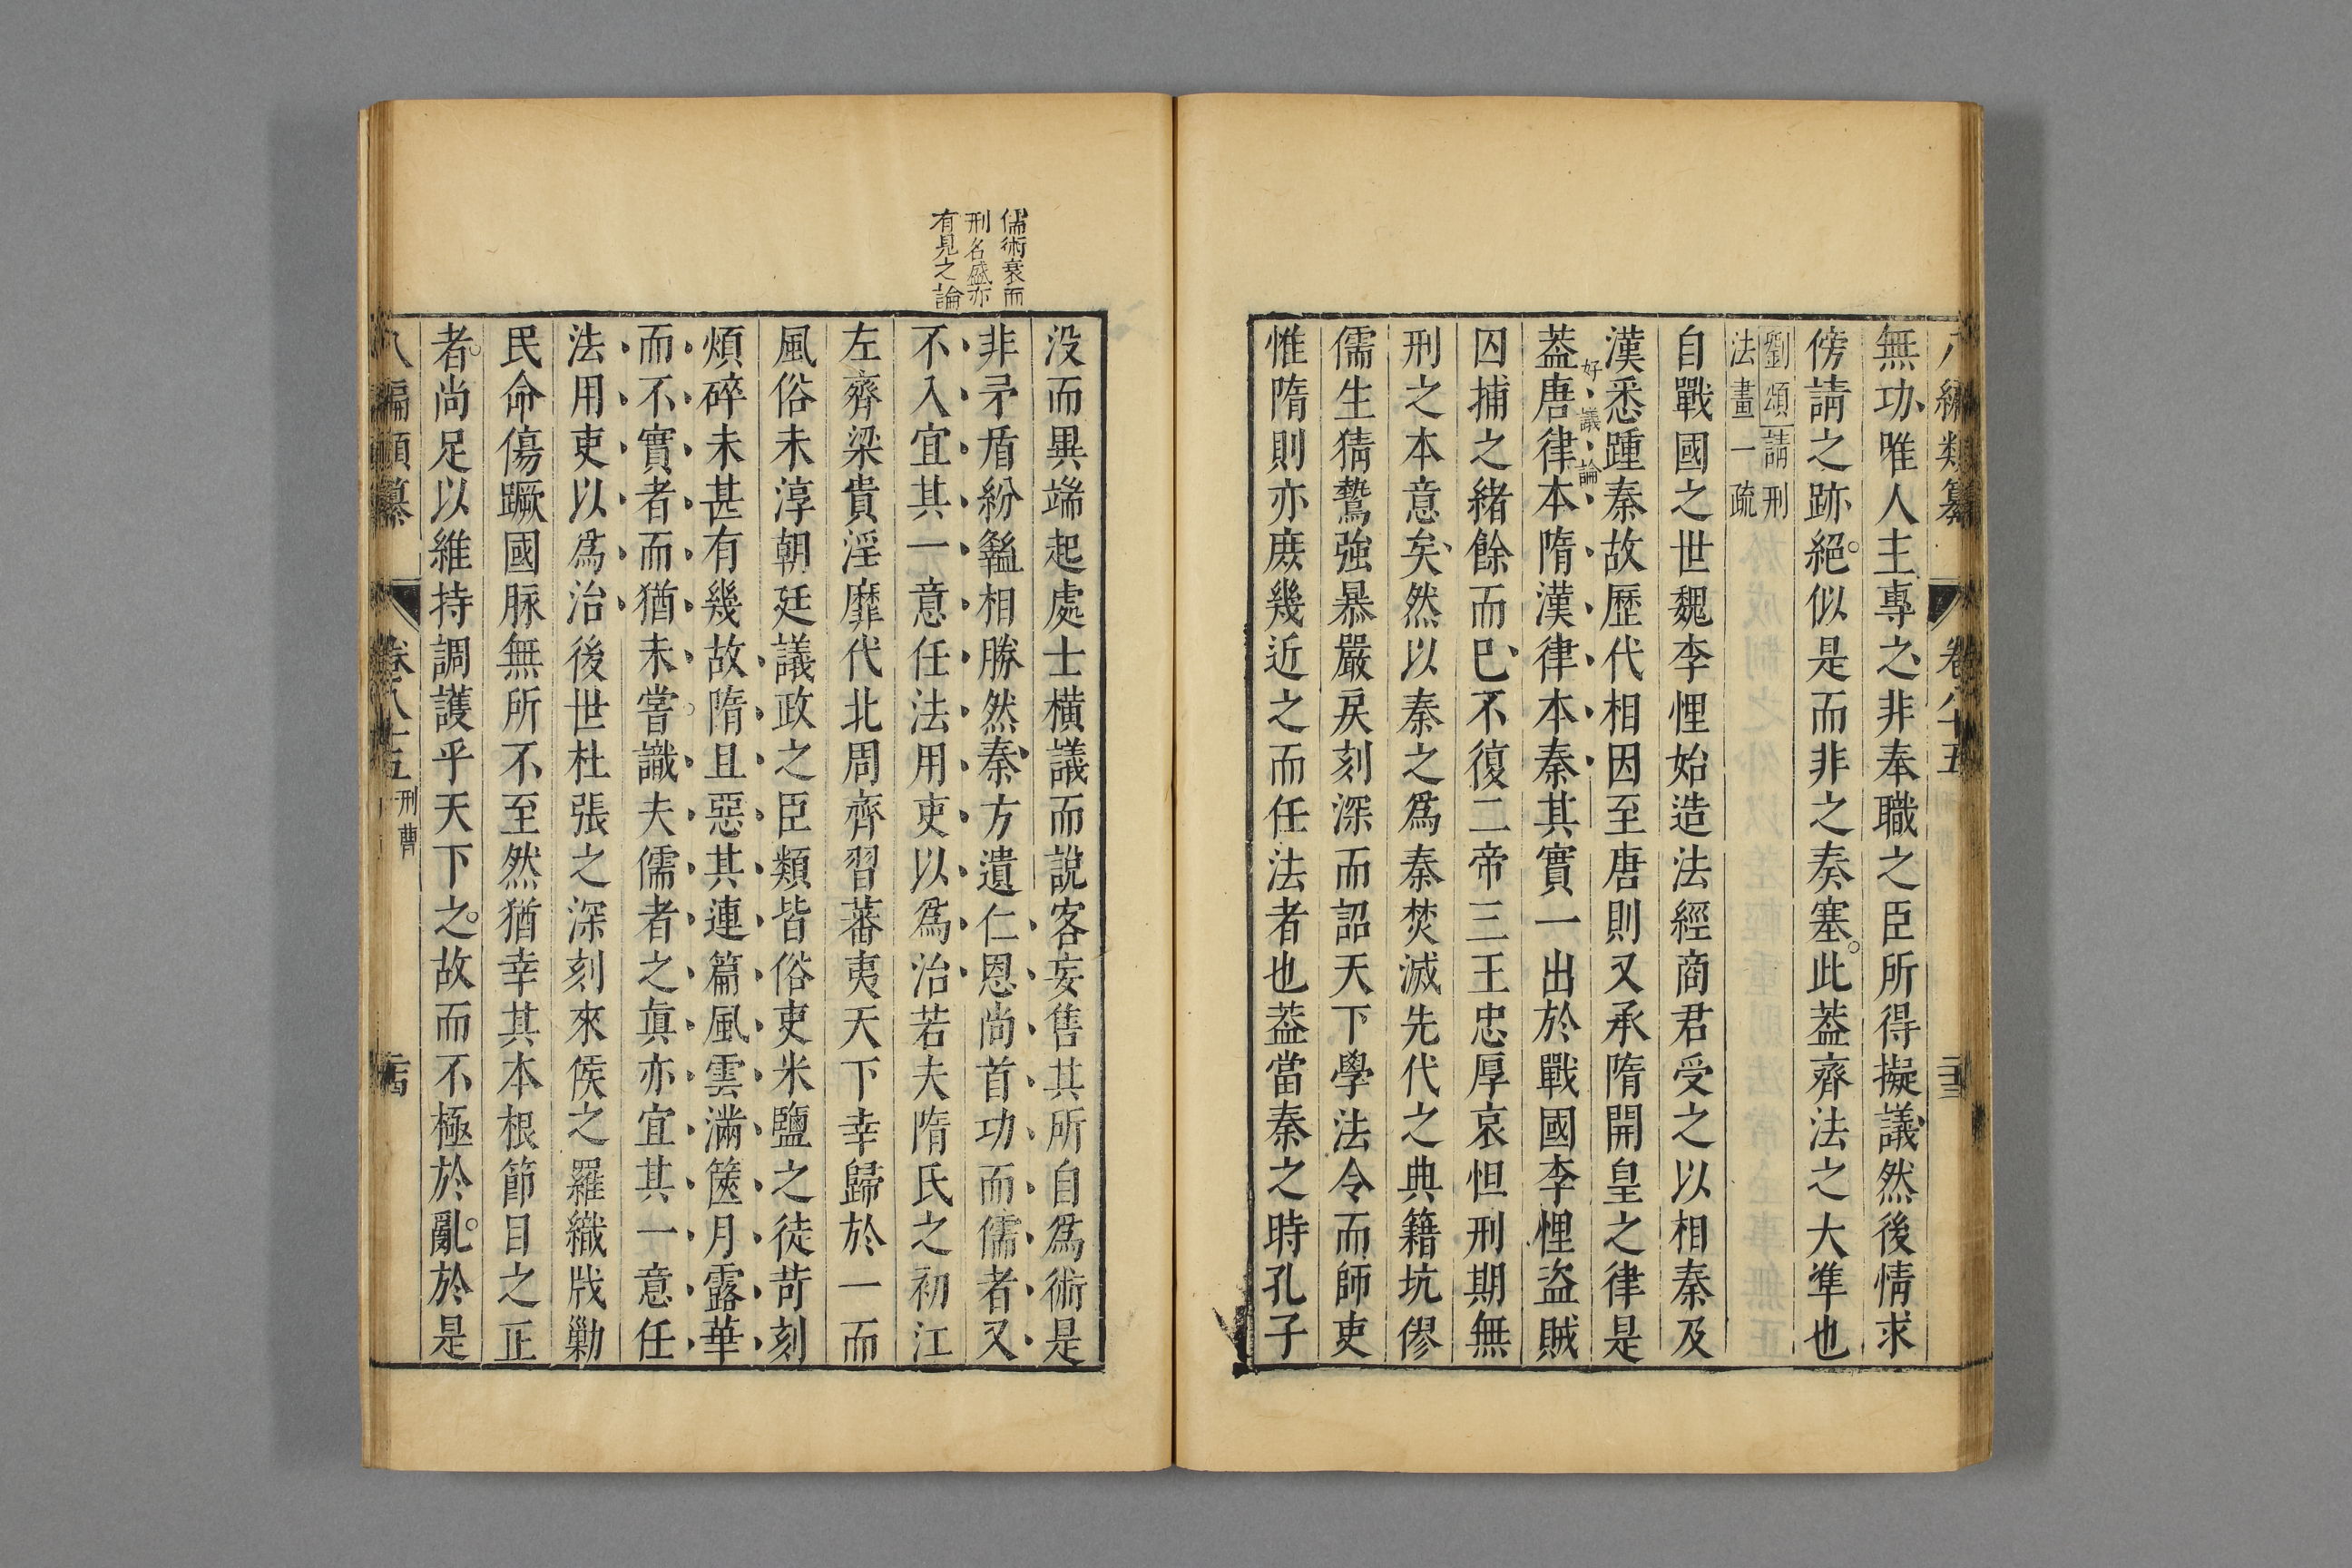 八編類纂 卷八十五 二十三
無功唯人主專之非奉職之臣所得擬議然後情求
傍請之跡絕似是而非之奏塞此葢齊法之大準也
劉頌請刑
法畫一疏
自戰國之世魏李悝始造法經商君受之以相秦及
漢悉踵秦故歷代相因至唐則又承隋開皇之律是
好議論
葢唐律本隋漢律本秦其實一出於戰國李悝盗賊
囚捕之緒餘而巳不復二帝三王忠厚哀怛刑期無
刑之本意矣然以秦之爲秦焚滅先代之典籍坑僇
儒生猜鷙強暴嚴戾刻深而詔天下學法令而師吏
惟隋則亦庶幾近之而任法者也葢當秦之時孔子
儒術衰而
刑名盛亦
有見之論
没而異端起處士橫議而說客妄售其所自爲術是
非矛盾紛龢相勝然秦方遺仁恩尚首功而儒者又
不入宜其一意任法用吏以爲治若夫隋氏之初江
左齊梁貴淫靡代北周齊習蕃夷天下幸歸於一而
風俗未淳朝廷議政之臣類皆俗吏米鹽之徒苛刻
煩碎未甚有幾故隋且惡其連篇風雲滿篋月露華
而不實者而猶未嘗識夫儒者之眞亦宜其一意任
法用吏以爲治後世杜張之深刻來侯之羅織戕勦
民命傷蹶國脉無所不至然猶幸其本根節目之正
者尚足以維持調護乎天下之故而不極於亂於是
八編類纂 卷八十五 刑曹 二十四